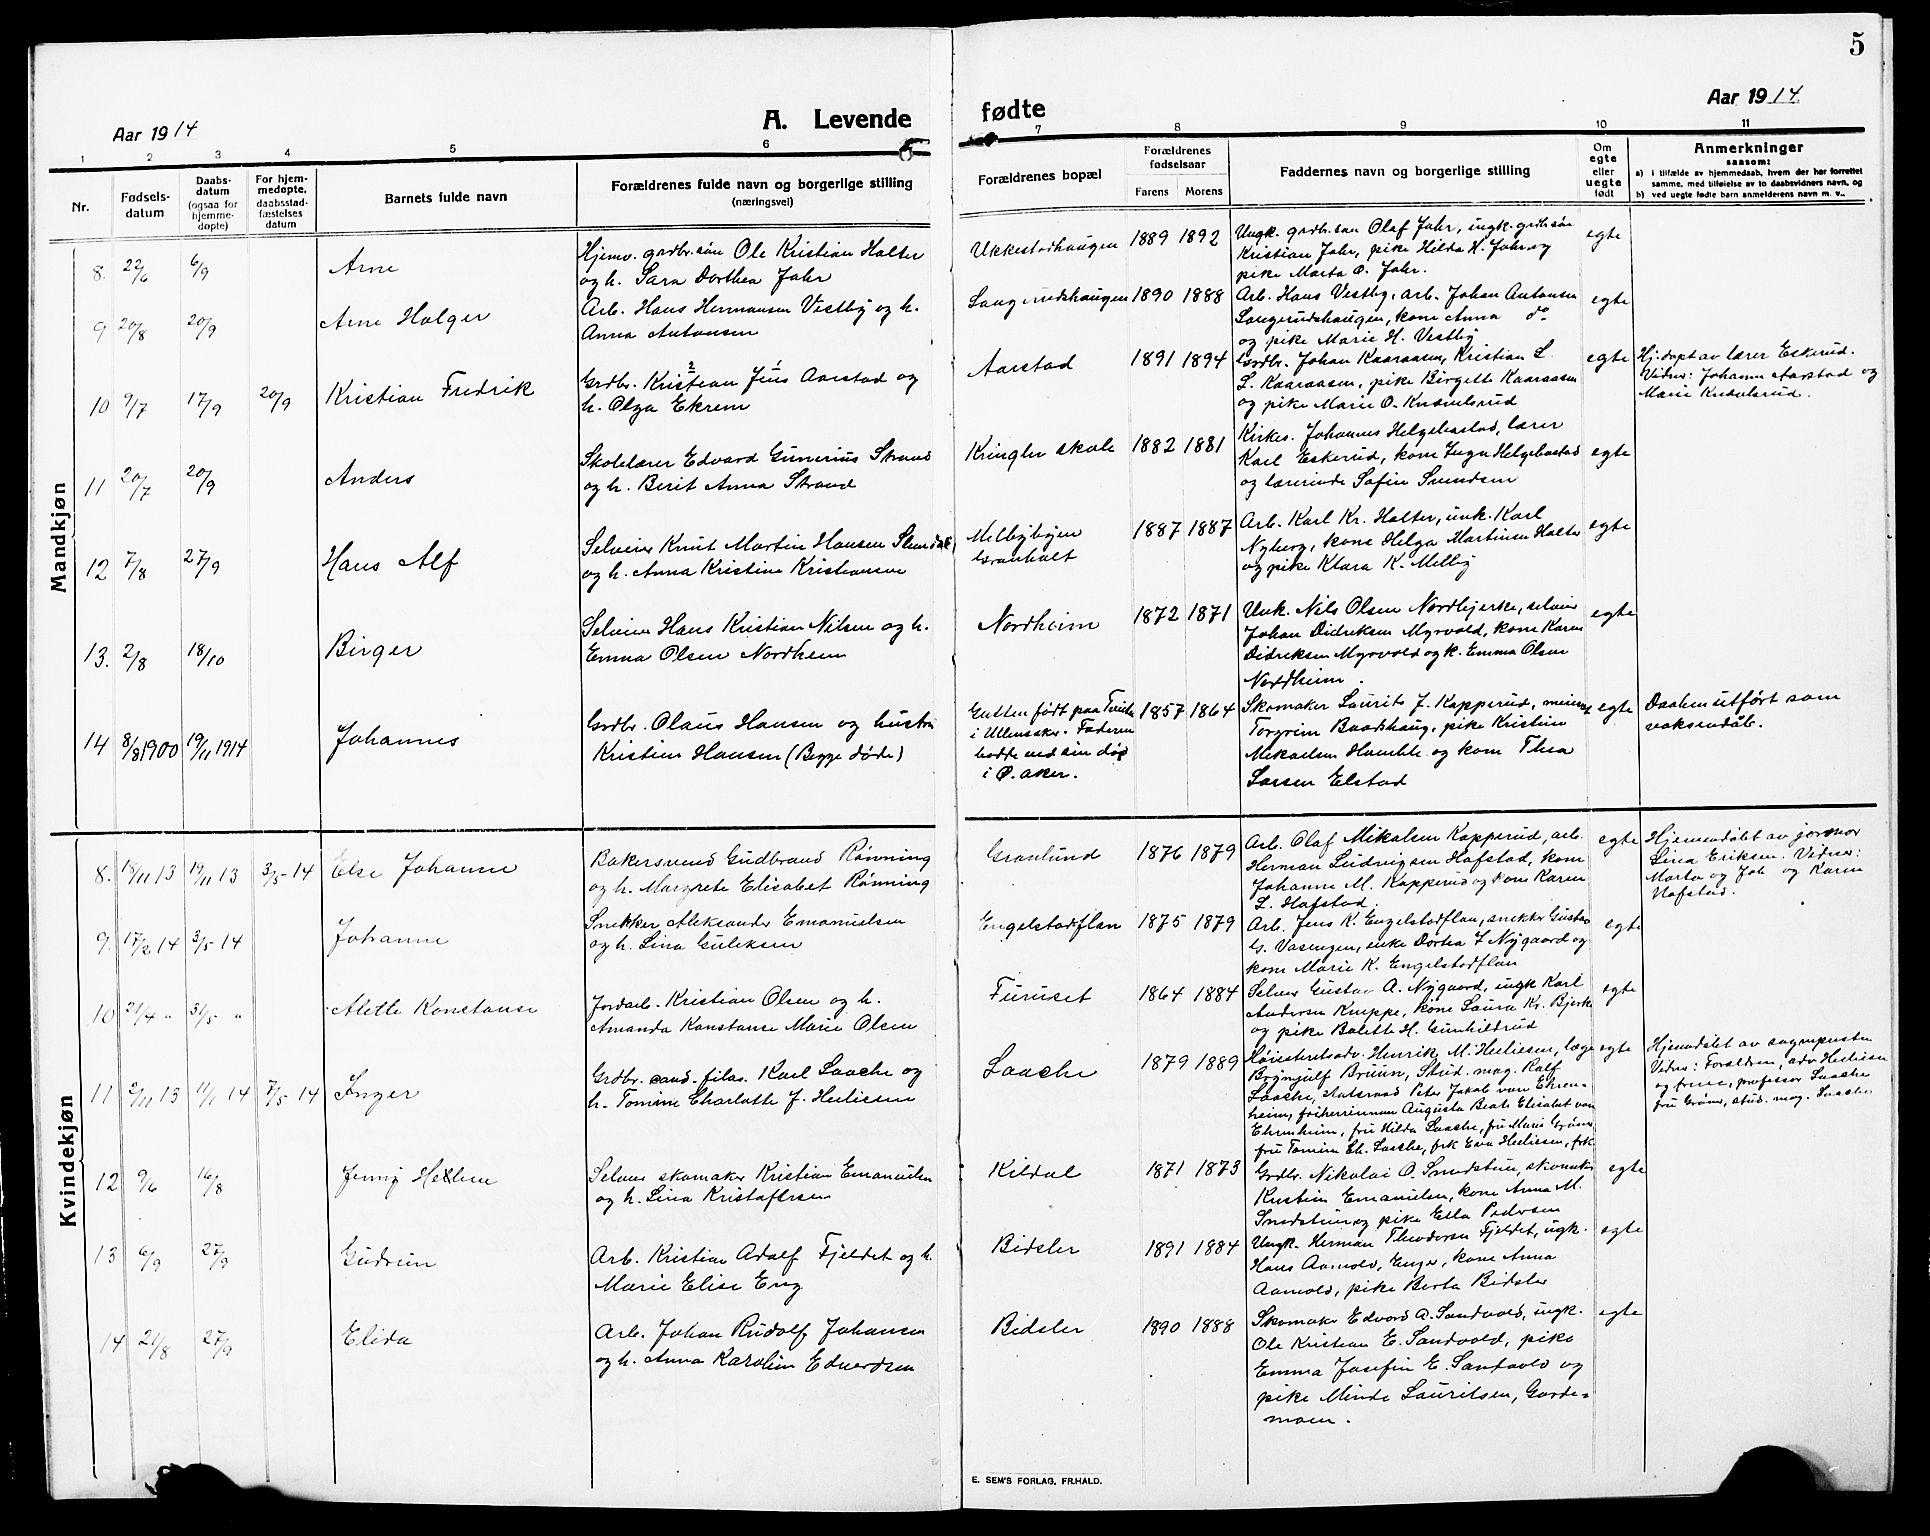 5
Aar 1914
A. Levende
fødte
Aar 1914
1 2 3 4 5 6 7 8 9 10 11
Nr.
Fødsels-
datum
Daabs-
datum
(ogsaa for
hjemme-
døpte)
For hjem-
medøpte,
daabsstad-
fæstelses
datum
Barnets fulde navn
Forældrenes fulde navn og borgerlige stilling
(næringsvei)
Forældrenes bopæl
Forældrenes
fødselsaar
Farens Morens
Faddernes navn og borgerlige stilling
Om
egte
eller
uegte
født
Anmerkninger
saasom:
a) i tilfælde av hjemmedaab, hvem der har forrettet
samme, med tilføielse av to daabsvidners navn, og
b) ved uegte fødte barn anmelderens navn m. v..
Mandkjøn
8. 22/6 6/9
Arne
Hjemv. grdbr. søn Ole Kristian Halter
og h. Sara Dorthea Jahr
Ukkestadhaugen
1889 1892
Ungk. grdbr. søn Olaf Jahr, ungk. grdbr. søn
Kristian Jahr, pike Hilda K. Jahr og
pike Marta O. Jahr.
egte
9 20/8 20/9
Arne Holger
Arb. Hans Hermansen Vestby og h.
Anna Antonsen
Langerudshaugen
1890 1888
Arb. Hans Vestby, arb. Johan Antonsen
Langerudshaugen, kone Anna do
og pike Marie H. Vestby
egte
10 9/7 17/9 20/9
Kristian Fredrik
Grdbr. Kristian Jüns Aarstad og
h. Olga Ekrem
Aarstad
1891 1894
Grdbr. Johan Kaaraasen, Kristian L.
L. Kaaraasen, pike Birgette Kaaraasen
og pike Marie O. Knevelsrud
egte
Hj. døpt av lærer Eskerud.
Vidner: Johanne Aarstad og
Marie Knevelsrud.
11 20/7 20/9
Anders
Skolelærer Edvard Gunerius Strand
og h. Berit Anna Strand
Kringler skole
1882 1881
Kirkes. Johannes Helgebostad, lærer
Karl Eskerud, kone Inga Helgebostad
og lærerinde Sofie Svendsen
egte
12 7/8 27/9
Hans Alf
Selveier Knut Martin Hansen
og h. Anna Kristine Kristiansen
Melbybyen
Granholt
1887 1887
Arb. Karl Kr. Halter, unk. Karl
Nyberg, kone Helga Martinsen Halter
og pike Klara K. Melby
egte
13. 2/8 18/10
Birger
Selveier Hans Kristian Nilsen og h.
Emma Olsen Nordheim
Nordheim
1872 1871
Unk. Nils Olsen Nordbjerke, selveier
Johan Didriksen Myrvold, kone Karen
Didriksen Myrvold og k. Emma Olsen
Nordheim.
egte
14 8/8 1900 19/11 1914
Johannes
Grdbr. Olaus Hansen og hustru
Kristine Hansen (Begge døde)
Gutten født paa
i Ullensaker. Faderen
bodde ved sin død
i Ø. aker.
1857 1864
Skomaker Laurits J. Kapperud,
Torgrim Baadshaug, pike Kristine
Mikaelsen Humble og kone Thea
Larsen Elstad
egte
Daaben utført som
voksendåb.
Kvindekjøn
8. 18/11 13 19/11 13 3/5-14
Else Johanne
Bakersvend Gudbrand Rønning
og h. Margrete Elisabet Rønning
Granlund
1876 1879
Arb. Olaf Mikalsen Kapperud, arb.
Herman Ludvigsen Hafstad, kone
Johanne M. Kapperud og kone Karen
L. Hafstad.
egte
Hjemmedøbt av jormor
Lina Eriksen. Vidner:
Marta og Joh og Karen
Hafstad.
9. 17/2 14 3/5-14
Johanne
Snekker Aleksander Emanuelsen
og h. Lina Guleksen
Engelstadflan
1875 1879
Arb. Jens K. Engelstadflan, snekker Gustav
G. Vasengen, enke Dortea J Nygaard og
kone Marie K. Engelstadflan
egte
10 21/4 " 31/5 "
Alette Konstanse
Jordarb. Kristian Olsen og h.
Amanda Konstanse Marie Olsen
Furuset
1864 1884
Selveier Gustav A. Nygaard, ungk Karl
Andersen Knuppe, kone Laura Kr. Bjerke
og pike Bolette H. Gunhildrud
egte
11 2/11 13 11/1 14 7/5-14
Inger
Grdbr. cand. filos. Karl Laache og
h. Tomine Charlotte J. Heiliesen
Laache
1879 1889
Høiesteretsadv. Henrik M. Heiliesen, læge
Brynjulf Bruun, Stud. mag. Rolf
Laache, Statsraad Peter Jakob von Ehren-
heim, friherrinnan Augusta Beate Elisabet von
Ehrenheim, fru Hilda Laache, fru Marie Grøner
fru Tomine Ch. Laache, frk Eva Heiliesen, frk.
egte
Hjemdøbt av sognepresten
Vidner: Forældrene, adv. Heiliesen
og frue, professor Laache
fru Grøner, stud. mag. Laache
12 9/6 16/8
Jenny Helene
Selveier skomaker Kristian Emanuelsen
og h. Lina Kristofersen
Kildal
1871 1873
Grdbr. Nikolai O. Smedstuen, skomaker
Kristian Emanuelsen, kone Anna M.
Smedstuen og pike Ella Pedersen
egte
13 6/9 27/9
Gudrun
Arb. Kristian Adolf Fjeldet og h.
Marie Elise Eng
Bidsler
1891 1884
Ungk. Herman Theodorsen Fjeldet, ugk.
Hans Aamold, Enger, kone Anna
Aamold, pike Berta Bidsler
egte
14 21/8 27/9
Elida
Arb. Johan Rudolf Johansen
og h. Anna Karoline Edvardsen
Bidsler
1890 1888
Skomaker Edvard A. Sandvold, ungk.
Ole Kristian E. Sandvold, pike
Emma Josefin E. Sandvold og
pike Minde Lauritsen, Garde-
moen.
egte
E. SEM'S FORLAG, FR.HALD.